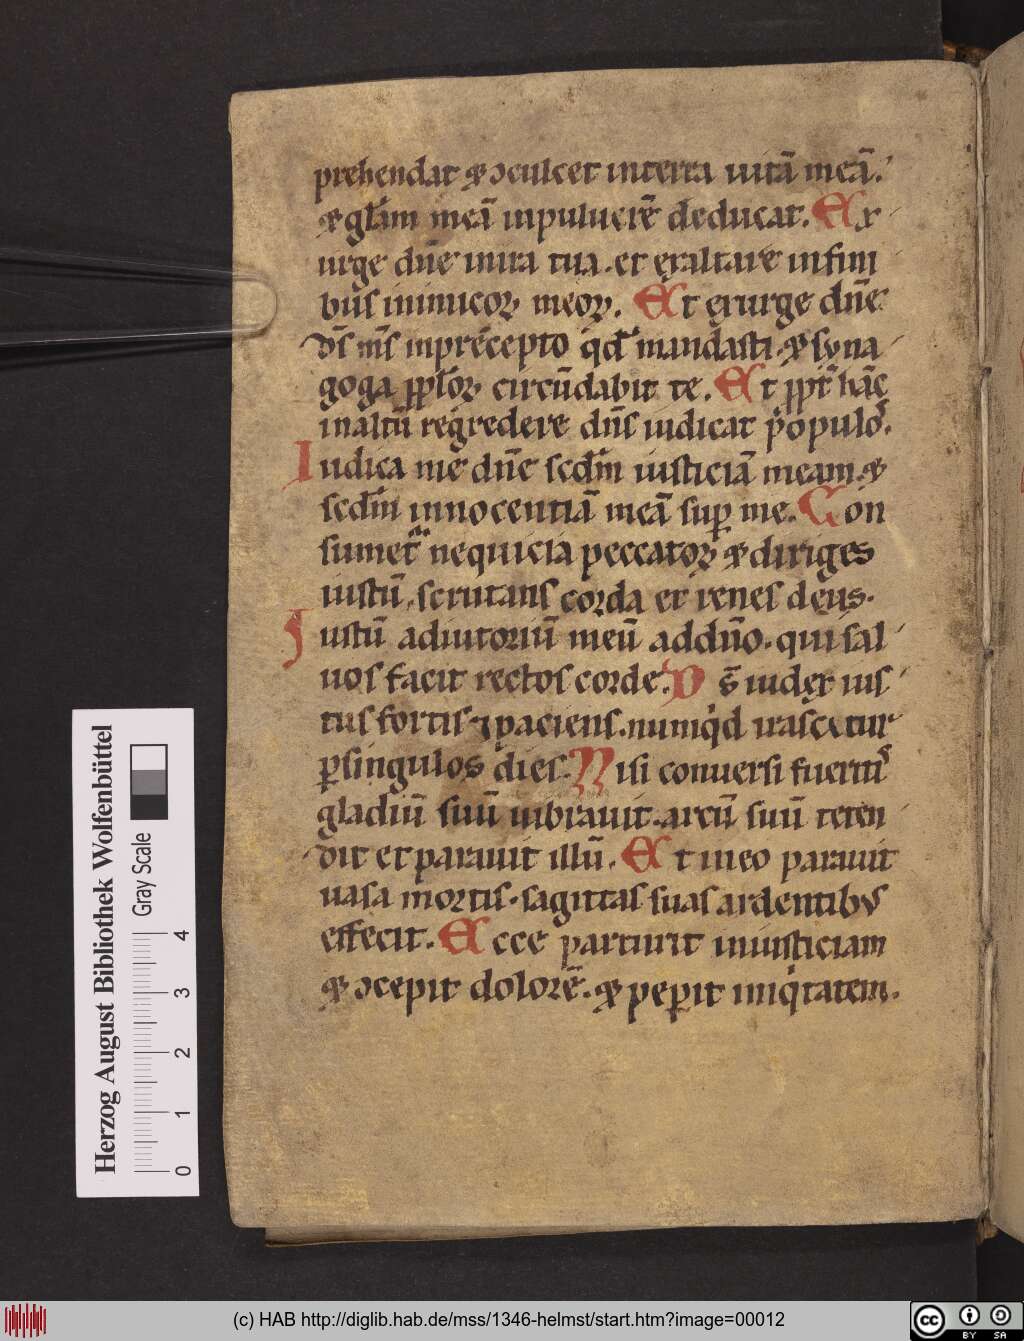 prehendat & ɔculcet interra uitā meā.
& gl̄am meā inpuluerē deducat. Ex
urge dn̄e inira tua. et exaltare infini
bus inimicoꝝ meoꝝ. Et exurge dn̄e
ds̄ ms̄ inprecepto qd̄ mandasti. & syna
goga ppl̄oꝝ circūdabit te. Et ppt̄ hāc
inaltū regredere dn̄s iudicat populos.
Iudica me dn̄e scdm̄ iusticiā meam. &
scdm̄ innocentiā meā suꝑ me. Con
sumet᷑ nequicia peccatoꝝ & diriges
iustū, scrutans corda et renes deus.
Iustū adiutoriū meū addn̄o. qui sal
uos facit rectos corde. Ds̄ iudex ius
tus fortis ⁊ paciens. numqͥd irascetur
ꝑ singulos dies. Nisi conuersi fueritis
gladiū suū uibrauit. arcū suū teten
dit et parauit illū. Et in eo parauit
uasa mortis. sagittas suas ardentibus
effecit. Ecce parturit iniusticiam
& ɔcepit dolorē. & peperit iniqͥtatem.
Herzog August Bibliothek Wolfenbüttel
Gray Scale
0 1 2 3 4
(c) HAB http://diglib.hab.de/mss/1346-helmst/start.htm?image=00012
cc BY SA